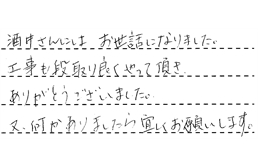 酒井さんには お世話になりました。
工事も段取り良くやって頂き
ありがとうございました。
又、何かありましたら宜しくお願いします。